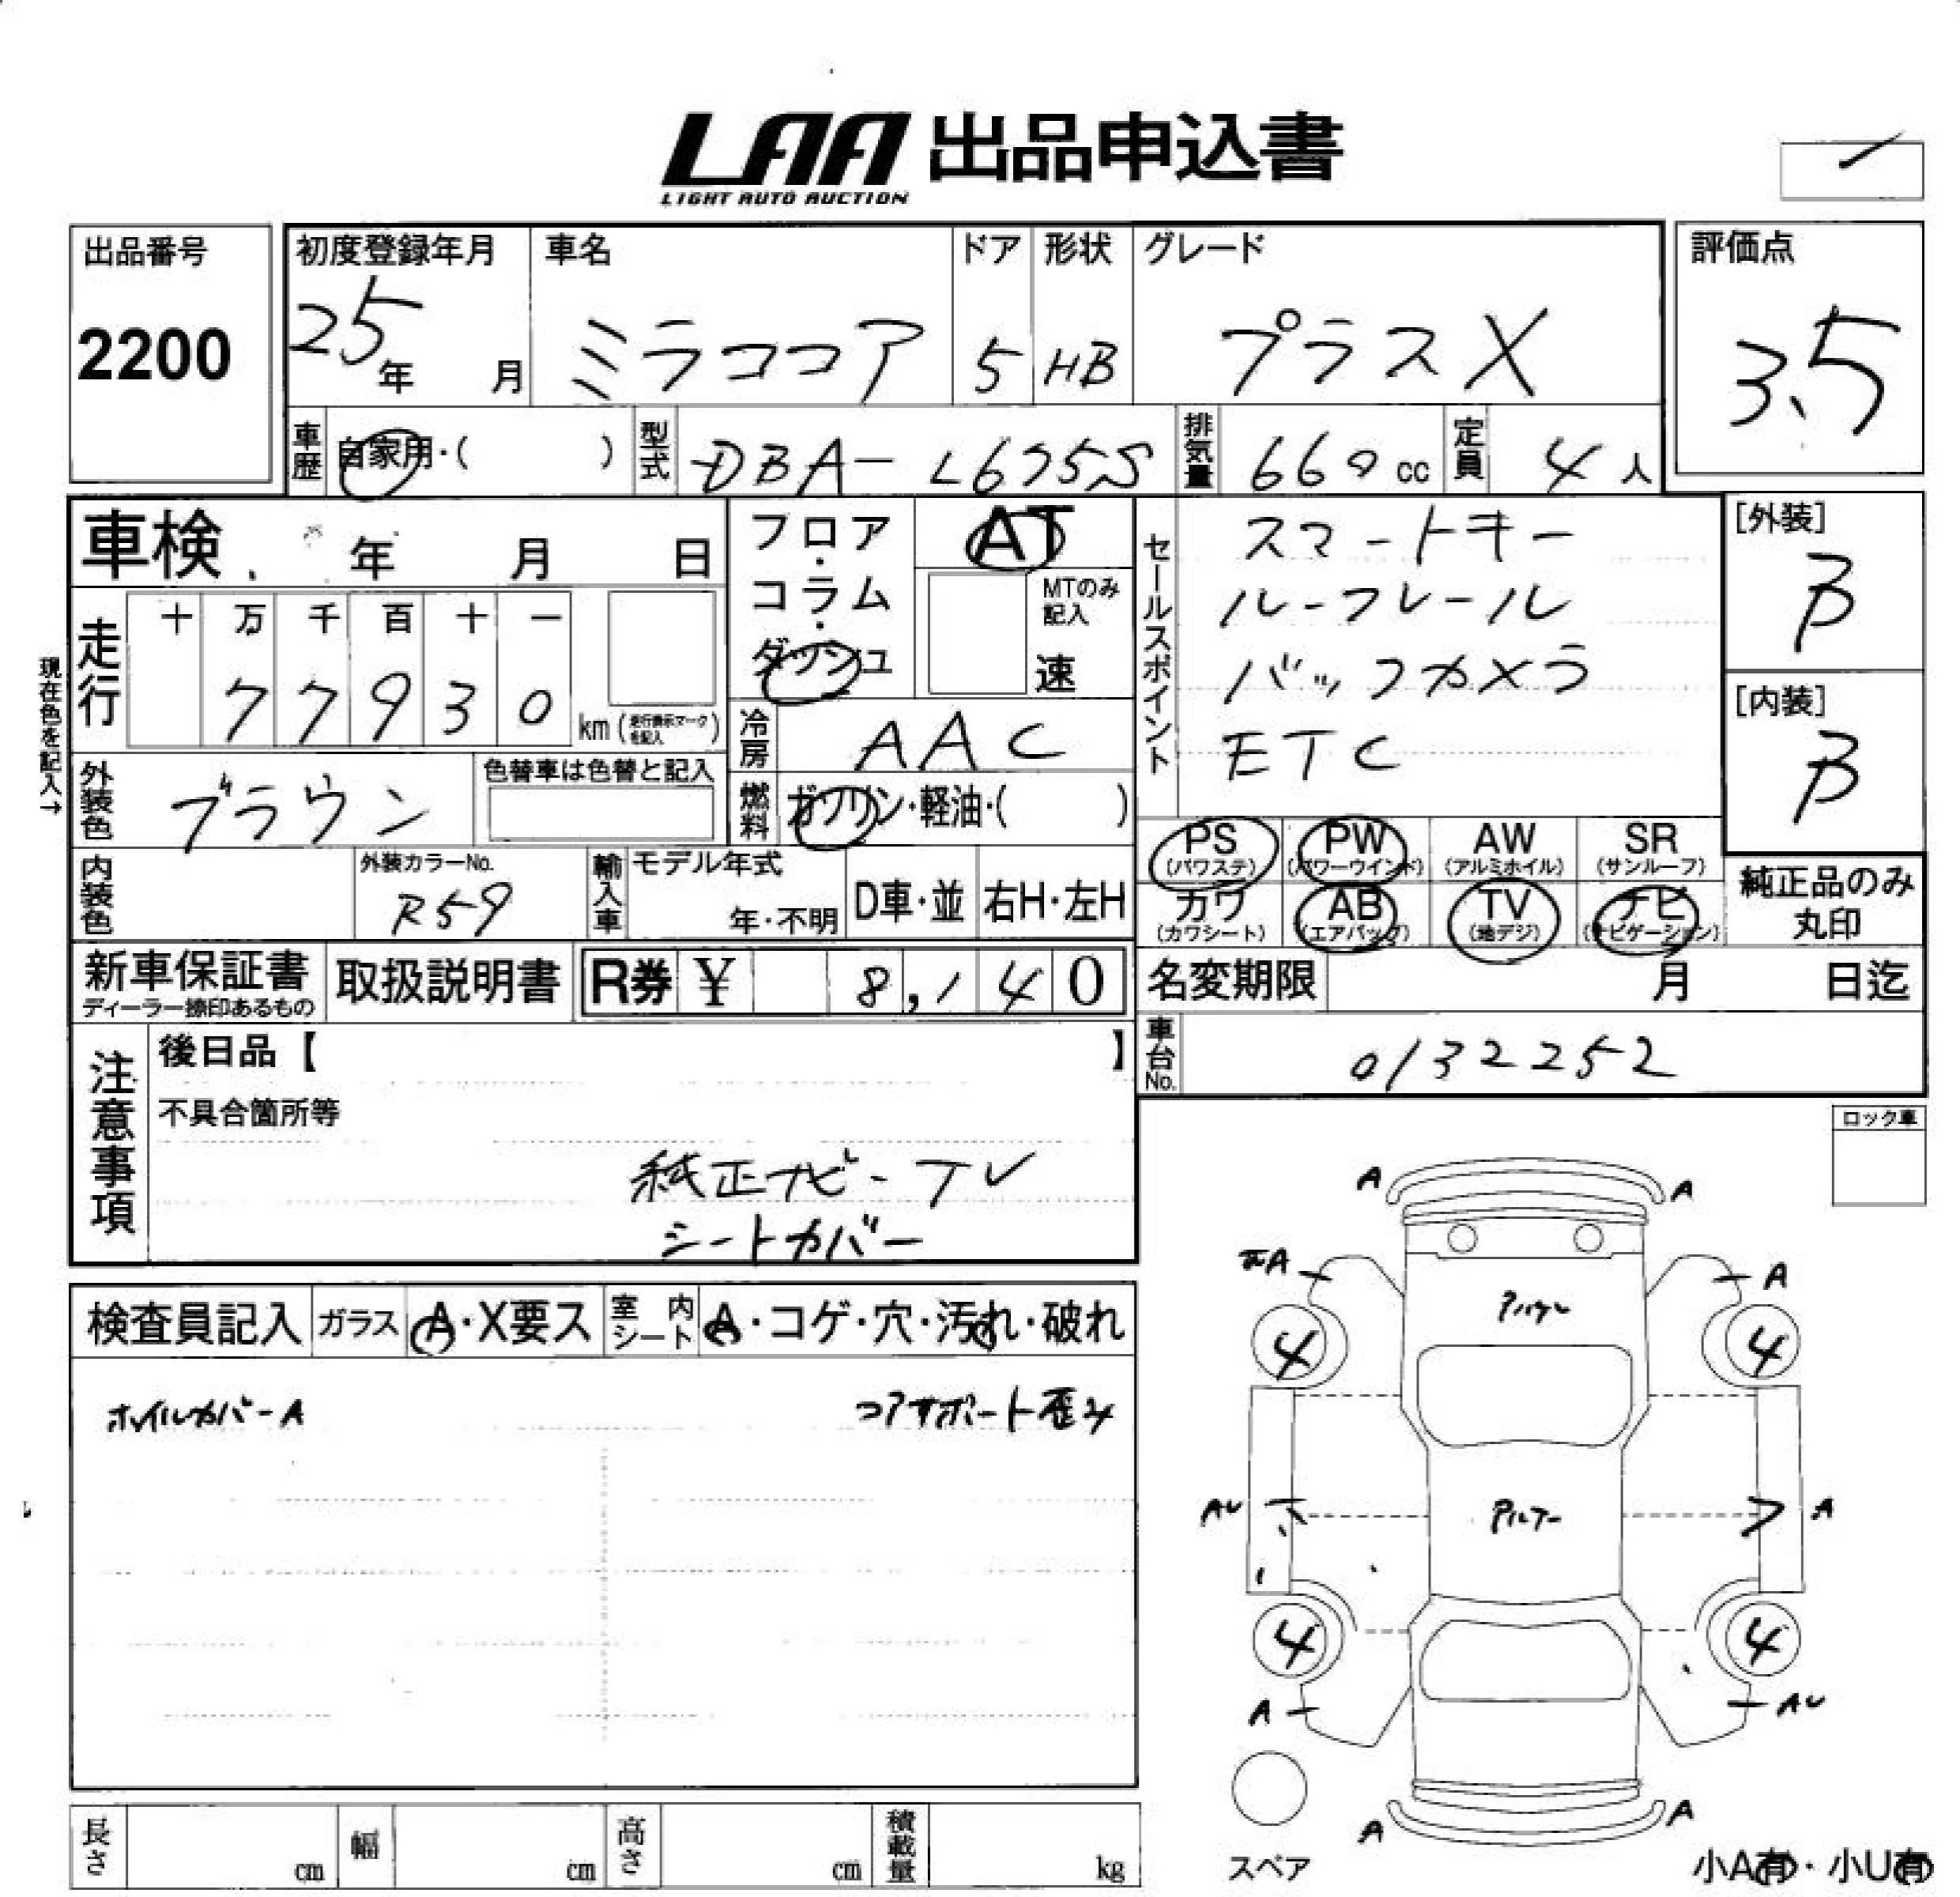 LAA 出品申込書
LIGHT AUTO AUCTION
出品番号
2200
初度登録年月
25年 月
車名
ミラココア
ドア
5
形状
HB
グレード
プラスX
評価点
3.5
車歴
自家用・( )
型式
DBA-L675S
排気量
660cc
定員
4人
車検 年 月 日
フロア・コラム・ダッシュ
AT
MTのみ記入
速
セールスポイント
スマートキー
ルーフレール
バックカメラ
ETC
[外装]
B
[内装]
B
現在色を記入→
走行
十 万 千 百 十 一
7 7 9 3 0
km (走行表示マークを記入)
冷房
AAC
外装色
ブラウン
色替車は色替と記入
燃料
ガソリン・軽油・( )
PS (パワステ)
PW (パワーウインド)
AW (アルミホイル)
SR (サンルーフ)
カワ (カワシート)
AB (エアバッグ)
TV (地デジ)
ナビ (ナビゲーション)
純正品のみ丸印
内装色
外装カラーNo.
R59
輸入車
モデル年式
年・不明
D車・並
右H・左H
新車保証書
ディーラー捺印あるもの
取扱説明書
R券 ¥ 8,140
名変期限 月 日迄
車台No.
0132252
注意事項
後日品【 】
不具合箇所等
純正ナビ-TV
シートカバー
ロック車
検査員記入
ガラス
A・X要ス
室内シート
A・コゲ・穴・汚れ・破れ
ホイルカバーA
コアサポート歪み
A A
A A
4 4
AU A
ルーフ
4 4
A AU
A A
スペア
小A有・小U有
長さ cm
幅 cm
高さ cm
積載量 kg